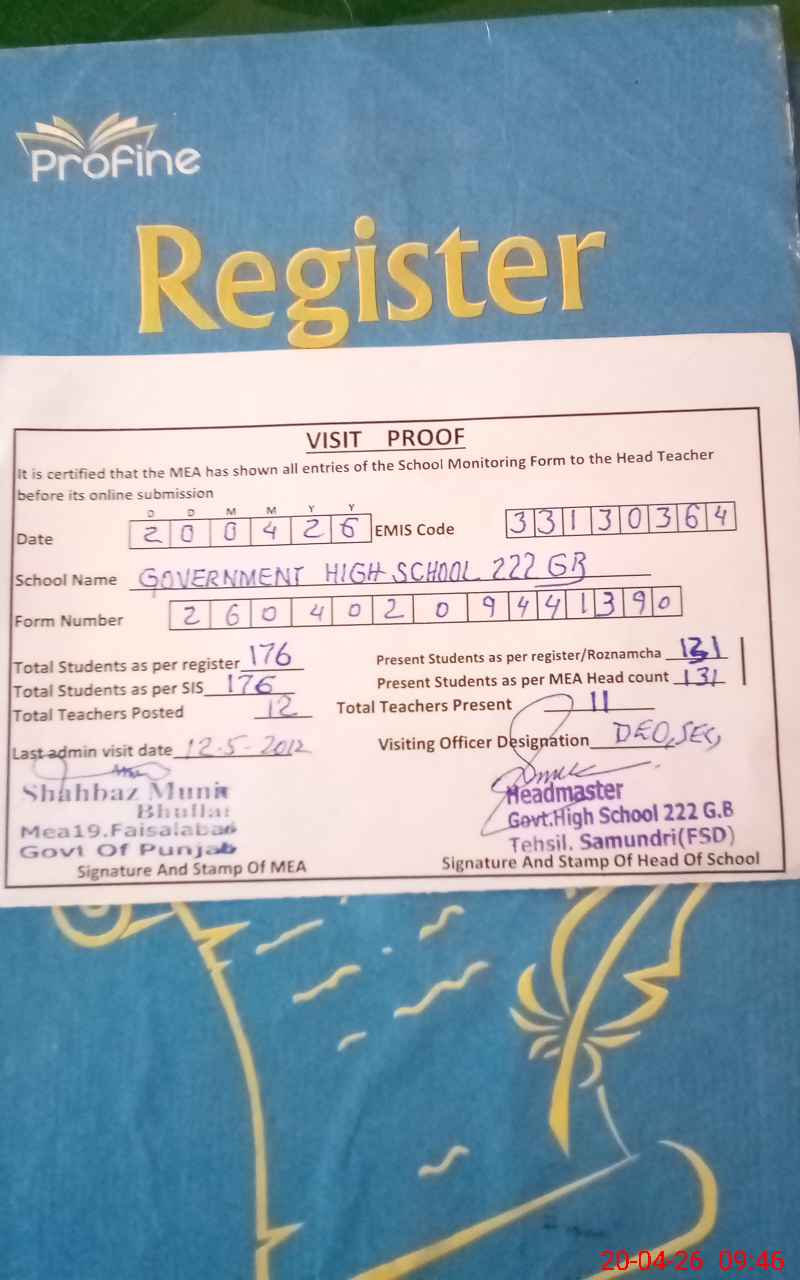 Profine
Register
VISIT PROOF
It is certified that the MEA has shown all entries of the School Monitoring Form to the Head Teacher
before its online submission
D D M M Y Y
Date 2 0 0 4 2 6 EMIS Code 3 3 1 3 0 3 6 4
School Name GOVERNMENT HIGH SCHOOL 222 GB
Form Number 2 6 0 4 0 2 0 9 4 4 1 3 9 0
Total Students as per register 176 Present Students as per register/Roznamcha 131
Total Students as per SIS 176 Present Students as per MEA Head count 131
Total Teachers Posted 12 Total Teachers Present 11
Last admin visit date 12-5-2012 Visiting Officer Designation DEO, SEC,
Shahbaz Munir Headmaster
Bhullar Govt.High School 222 G.B
Mea19.Faisalabad Tehsil. Samundri(FSD)
Govt Of Punjab
Signature And Stamp Of MEA Signature And Stamp Of Head Of School
20-04-26 09:46